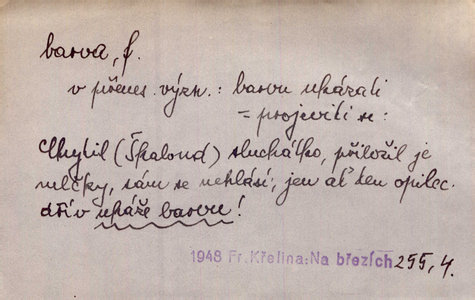 barva, f.
v přenes. význ.: barvu ukázati
= projeviti se:
Chytil (Škaloud) sluchátko, přiložil je
mlčky, sám se nehlásí; jen ať ten opilec
dřív ukáže barvu!
1948 Fr. Křelina: Na březích 255, 4.